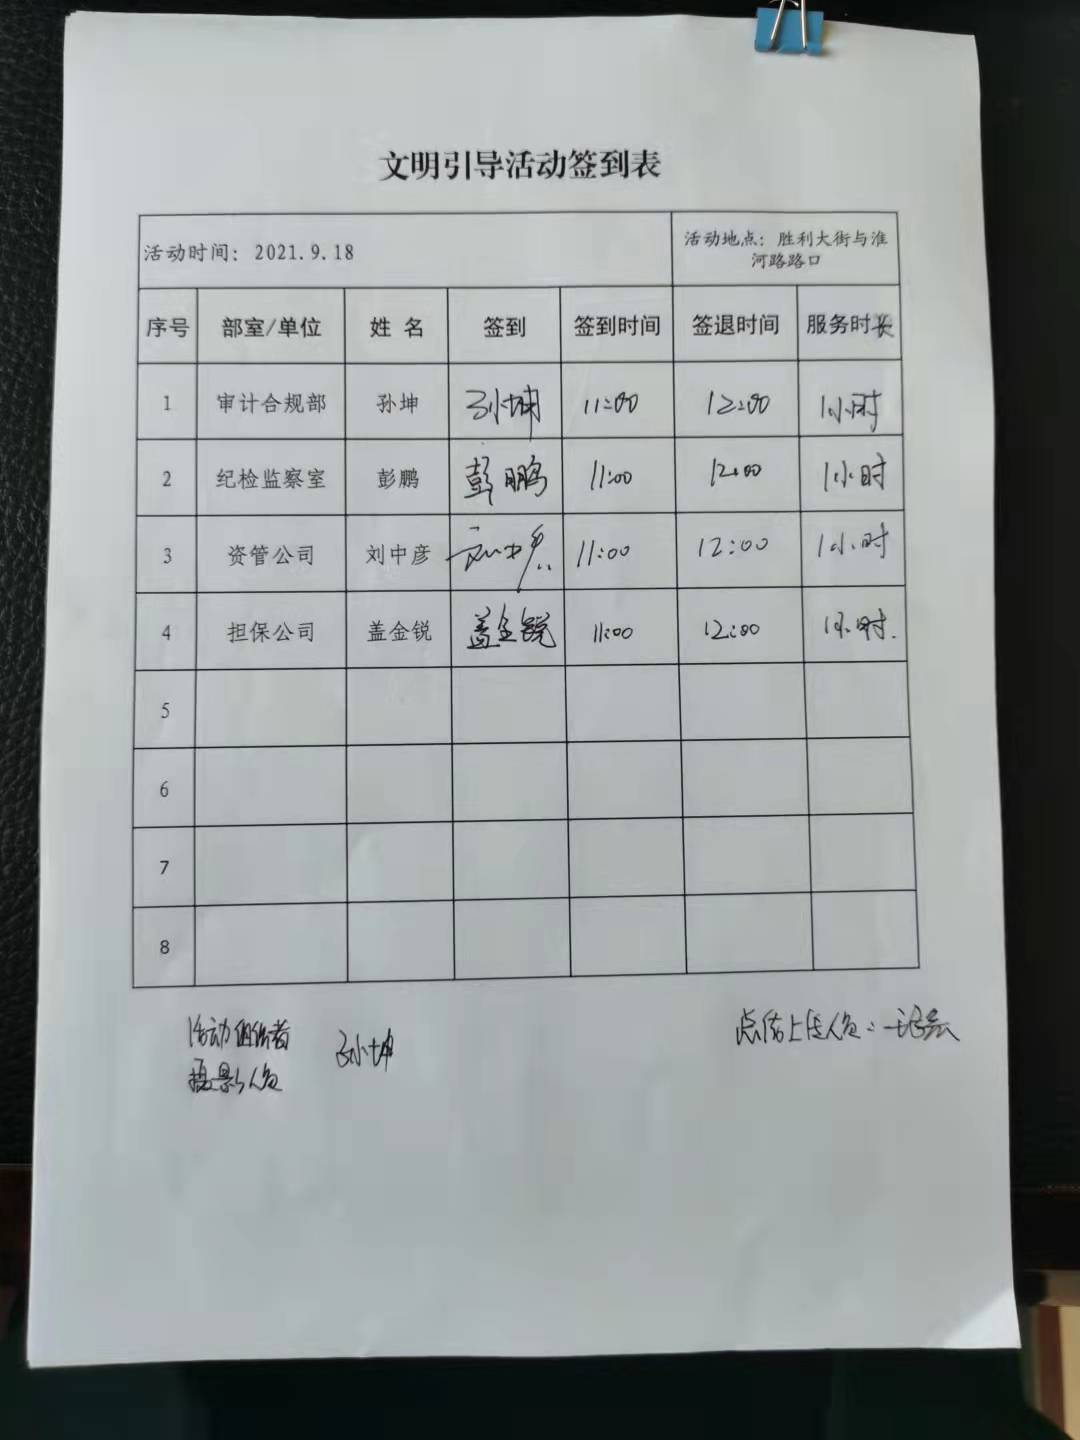 文明引导活动签到表
活动时间：2021.9.18
活动地点：胜利大街与淮
河路路口
序号 部室/单位 姓 名 签到 签到时间 签退时间 服务时长
1 审计合规部 孙坤 孙坤 11:00 12:00 1小时
2 纪检监察室 彭鹏 彭鹏 11:00 12:00 1小时
3 资管公司 刘中彦 刘中彦 11:00 12:00 1小时
4 担保公司 盖金锐 盖金锐 11:00 12:00 1小时.
5
6
7
8
活动组织者 孙坤
摄影人员
点位上 人员：